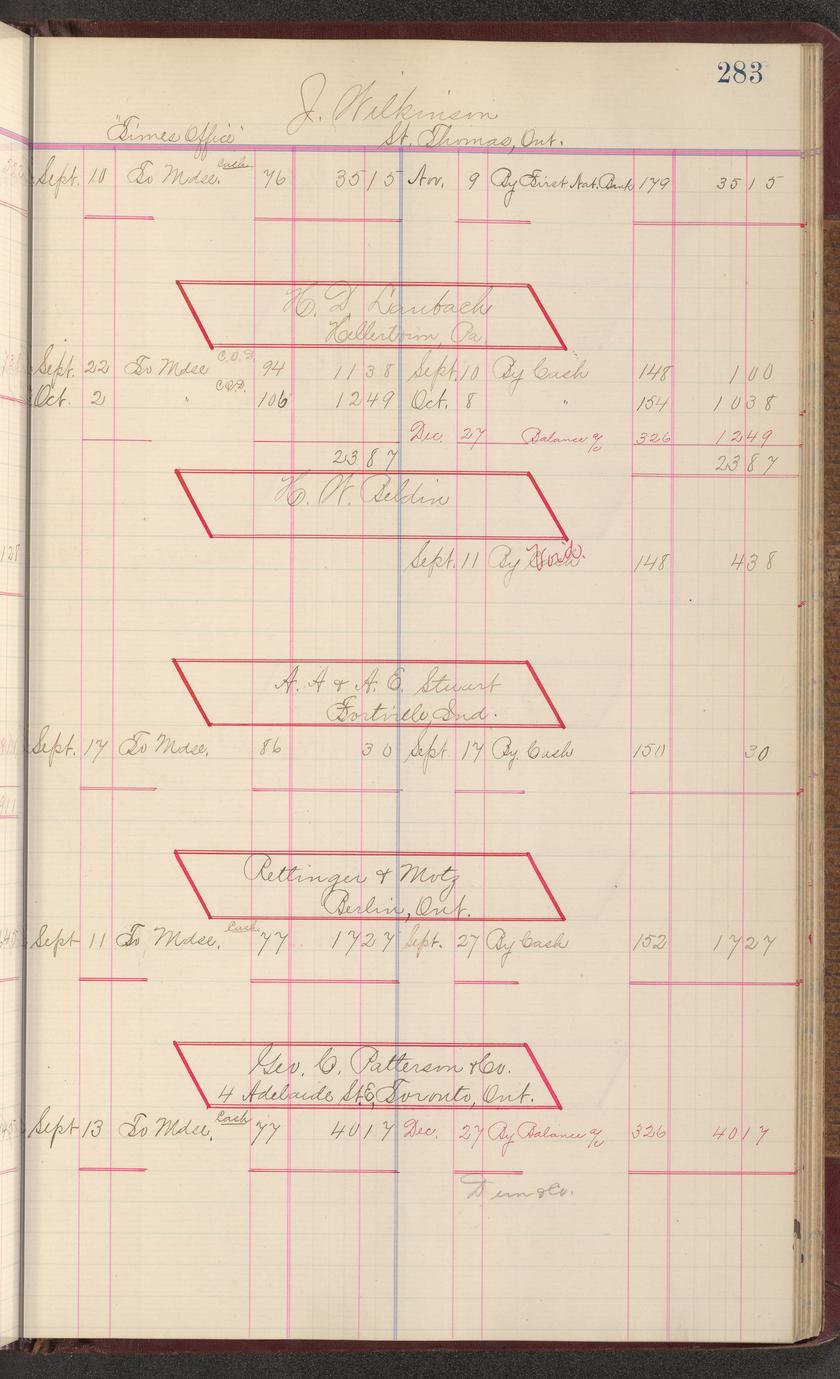 283
J. Wilkinson
"Times Office" St. Thomas, Ont.
Sept. 10 To Mdse. Cash 76 35 15 Nov. 9 By First Nat. Bank 179 35 15
H. D. Laubach
Hellertown, Pa.
Sept. 22 To Mdse C.O.D. 94 11 38 Sept. 10 By Cash 148 1 00
Oct. 2 " C.O.D. 106 12 49 Oct. 8 " 154 10 38
Dec. 27 Balance a/c 326 12 49
23 87 23 87
H. W. Beldin
Sept. 11 By Cash Void. 148 4 38
A. A & A. E. Stuart
Fortville, Ind.
Sept. 17 To Mdse. 86 30 Sept. 17 By Cash 150 30
Rettinger & Motz
Berlin, Ont.
Sept 11 To Mdse. Cash 77 17 27 Sept. 27 By Cash 152 17 27
Geo. C. Patterson & Co.
4 Adelaide St. E, Toronto, Ont.
Sept 13 To Mdse. Cash 77 40 17 Dec. 27 By Balance a/c 326 40 17
& Co.